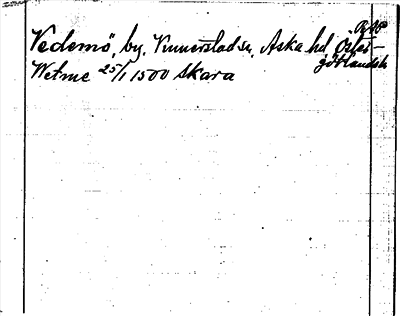 RAP
Vedemö, by, Kumerstad sn, Aska hd, Öster-
götlands l.
Wetme 25/1 1500 Skara